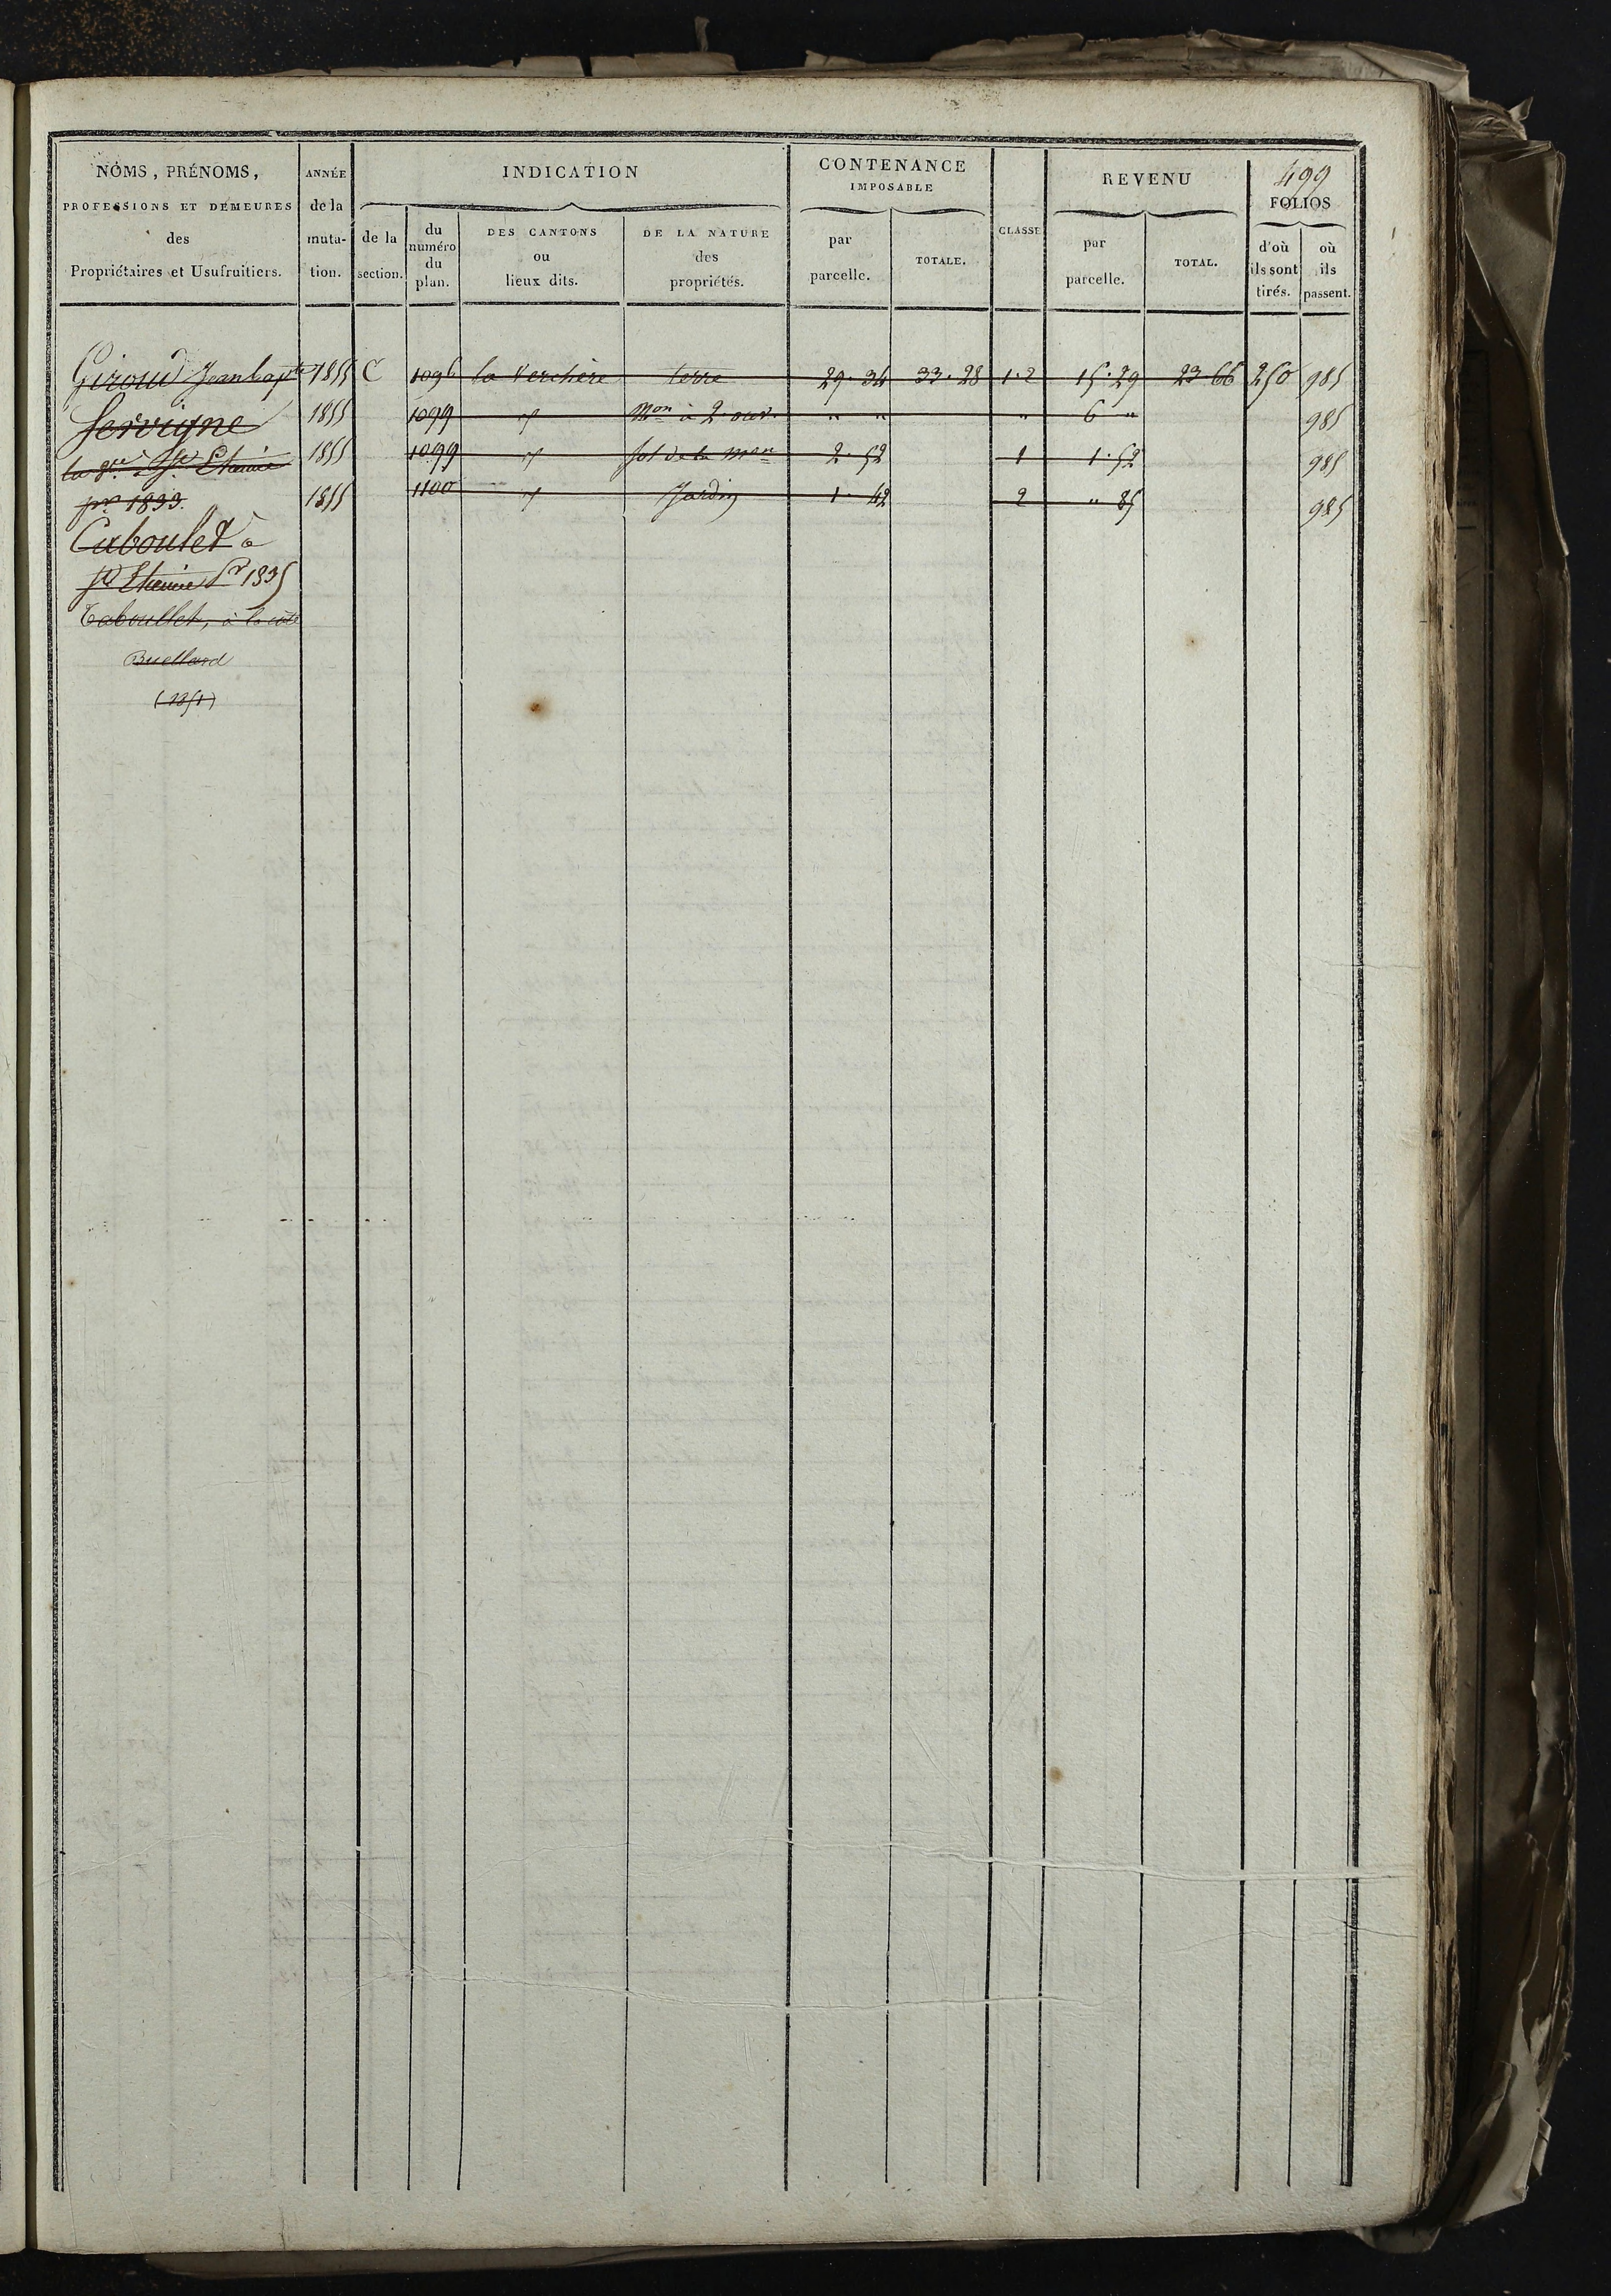 499
NOMS, PRÉNOMS, PROFESSIONS ET DEMEURES des Propriétaires et Usufruitiers.
ANNÉE de la muta- tion.
INDICATION
de la section.
du numéro du plan.
DES CANTONS ou lieux dits.
DE LA NATURE des propriétés.
CONTENANCE IMPOSABLE
par parcelle.
TOTALE.
CLASSE
REVENU
par parcelle.
TOTAL.
FOLIOS
d'où ils sont tirés.
où ils passent.
Giroud Jean bapte 1855 C 1096 la Verchère terre 29.34 33.28 1.2 15.29 23 66 250 985
Servigne 1855 1099 " Mon à 2 ouv. " " " 6 " 985
la Vve à St Etienne 1855 1099 " Sol de la Mon 2.52 1 1.52 985
pr 1833. 1855 1100 " Jardin 1.42 2 " 85 985
Caboulet à
St Etienne Pr 1835
Taboullet, à la côte
Buellard
(1851)